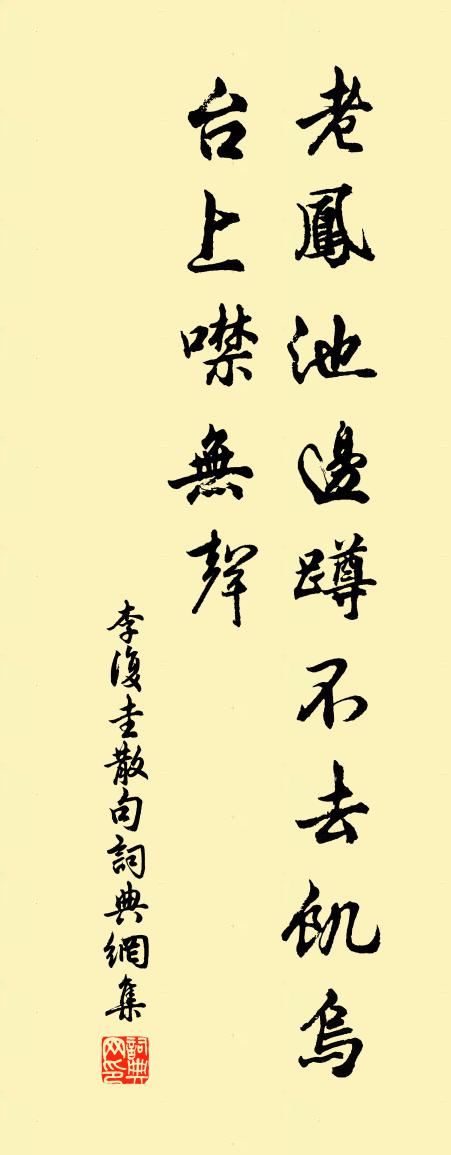 老鳳池邊蹲不去飢烏
台上噤無聲
李復圭散句詞典網集
詞典网印